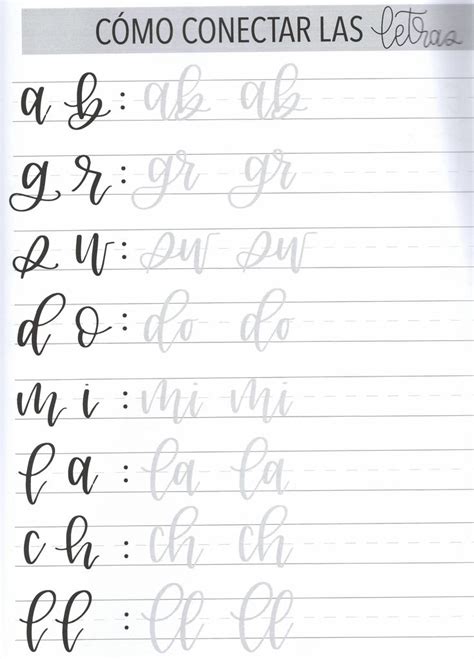 CÓMO CONECTAR LAS letras
a b : ab ab
g r : gr gr
s w : sw sw
d o : do do
m i : mi mi
l a : la la
c h : ch ch
l l : ll ll